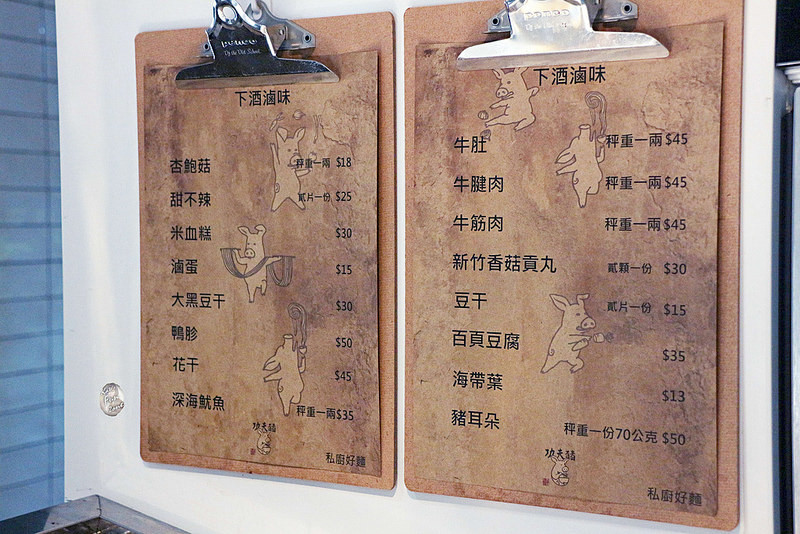 下酒滷味
杏鮑菇 秤重一兩 $18
甜不辣 貳片一份 $25
米血糕 $30
滷蛋 $15
大黑豆干 $30
鴨胗 $50
花干 $45
深海魷魚 秤重一兩$35
功夫豬
私廚好麵
下酒滷味
牛肚 秤重一兩 $45
牛腱肉 秤重一兩 $45
牛筋肉 秤重一兩 $45
新竹香菇貢丸 貳顆一份 $30
豆干 貳片一份 $15
百頁豆腐 $35
海帶葉 $13
豬耳朵 秤重一份70公克 $50
功夫豬
私廚好麵